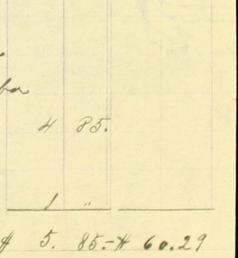 4 85.
1 "
$ 5. 85.-# 60.29